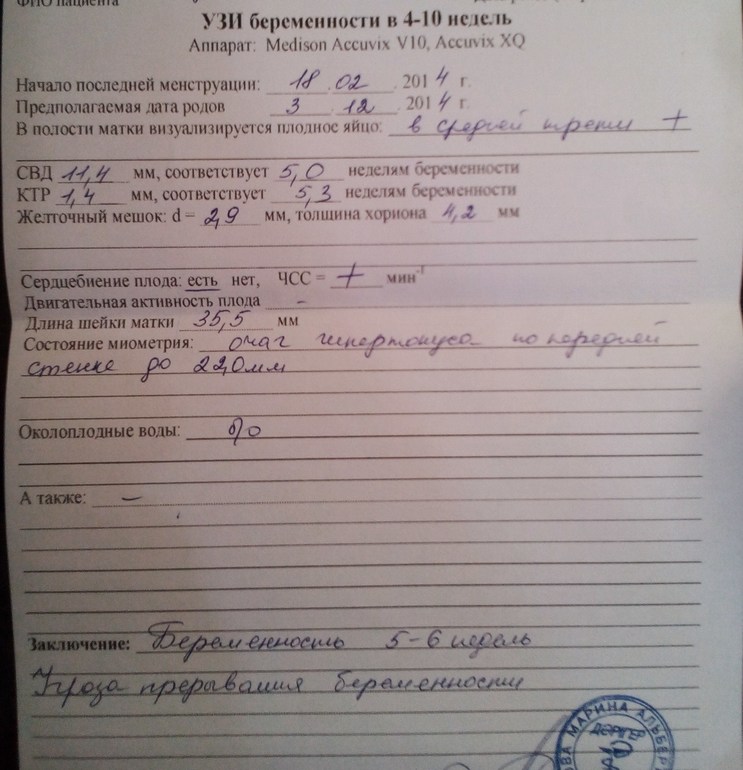 ФИО пациента
УЗИ беременности в 4-10 недель
Аппарат: Medison Accuvix V10, Accuvix XQ
Начало последней менструации: 18.02.2014 г.
Предполагаемая дата родов 3.12.2014 г.
В полости матки визуализируется плодное яйцо: в средней трети +
СВД 11,4 мм, соответствует 5,0 неделям беременности
КТР 1,4 мм, соответствует 5,3 неделям беременности
Желточный мешок: d = 2,9 мм, толщина хориона 4,2 мм
Сердцебиение плода: есть нет, ЧСС = + мин⁻¹
Двигательная активность плода -
Длина шейки матки 35,5 мм
Состояние миометрия: очаг гипертонуса по передней
стенке до 22,0 мм
Околоплодные воды: б/о
А также: —
Заключение: Беременность 5-6 недель
Угроза прерывания беременности
МАРИНА АЛЬБЕР